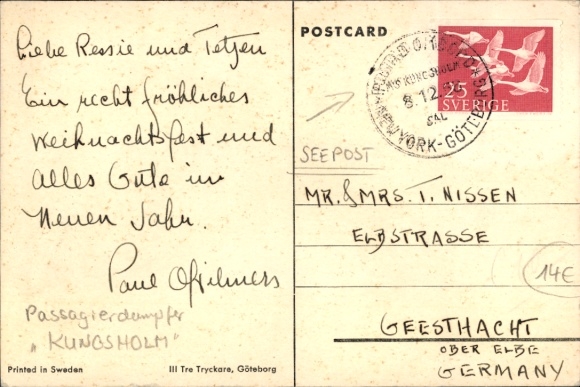 Liebe Ressie und Tetjen
Ein recht fröhliches
Weihnachtsfest und
alles Gute im
Neuen Jahr.
Paul
Passagierdampfer
"KUNGSHOLM"
Printed in Sweden
III Tre Tryckare, Göteborg
POSTCARD
KUNGSHOLM
8.12.
SAL
NEW YORK-GÖTEBORG
25
SVERIGE
SEEPOST
MR. & MRS. T. NISSEN
ELBSTRASSE
14€
GEESTHACHT
OBER ELBE
GERMANY